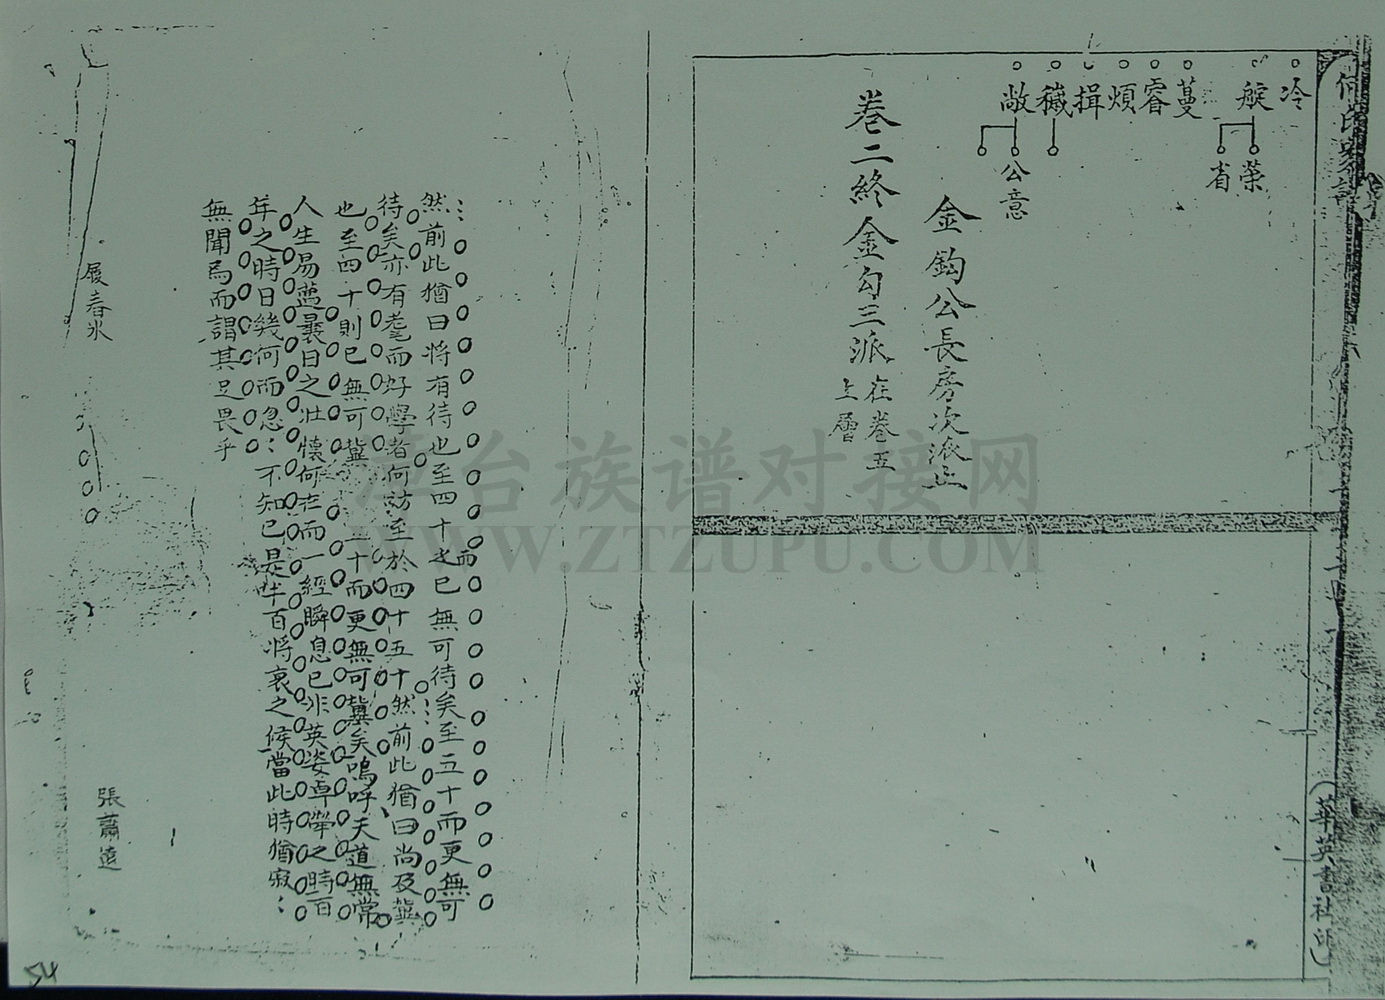 何氏家譜
(華英書社印)
冷
艇
榮
省
蔓
睿
煩
揖
穢
敞
公意
金鈎公長房次派止
卷二終金勾三派在卷五
上層
然前此猶曰將有待也至四十而已無可待矣至五十而更無可
待矣亦有耄而好學者何訪至於四十五十然前此猶曰尚及冀
也至四十則已無可冀 五十而更無可冀矣嗚呼天道無常
人生易邁曩日之壯懷何在而一經瞬息已非英姿卓犖之時百
年之時日幾何而忽：不知已是半百將衰之候當此時猶寂：
無聞焉而謂其足畏乎
履春氷
張蕭遠
54
中台族谱对接网
WWW.ZTZUPU.COM